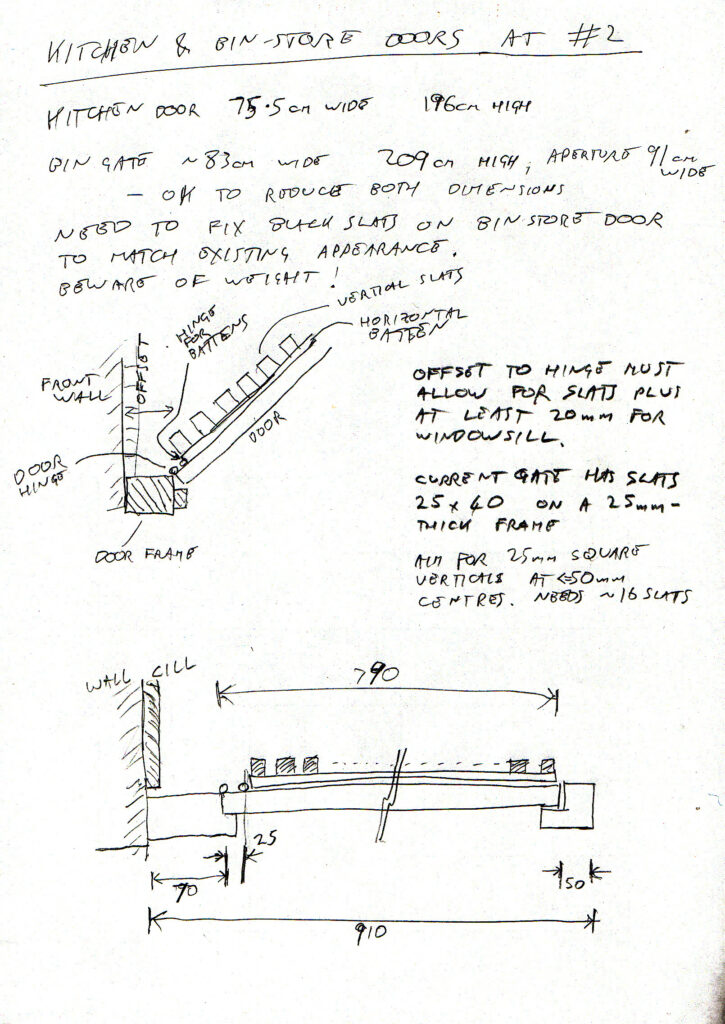 KITCHEN & BIN-STORE DOORS AT #2
KITCHEN DOOR 75.5cm WIDE 196cm HIGH
BIN GATE ~83cm WIDE 209cm HIGH, APERTURE 91cm WIDE
– OK TO REDUCE BOTH DIMENSIONS
NEED TO FIX BLACK SLATS ON BIN STORE DOOR
TO MATCH EXISTING APPEARANCE.
BEWARE OF WEIGHT!
HINGE FOR BATTENS
VERTICAL SLATS
HORIZONTAL BATTEN
FRONT WALL
OFFSET
DOOR
DOOR HINGE
DOOR FRAME
OFFSET TO HINGE MUST
ALLOW FOR SLATS PLUS
AT LEAST 20mm FOR
WINDOWSILL.
CURRENT GATE HAS SLATS
25 x 40 ON A 25mm-
THICK FRAME
AIM FOR 25mm SQUARE
VERTICALS AT <=50mm
CENTRES. NEEDS ~16 SLATS
WALL CILL
790
25
70
50
910